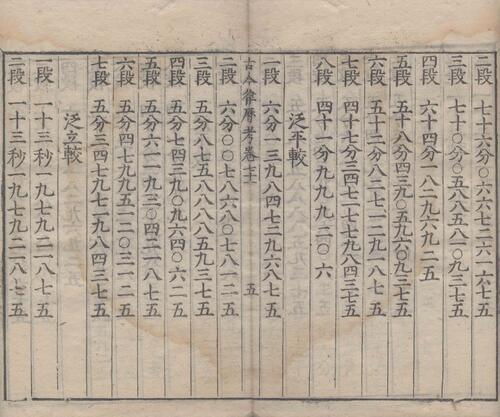 二段 七十六分〇六六七二六一六七五
三段 七十〇分五八八五一八〇九三七五
四段 六十四分一八二九六九二五
五段 五十八分四三九〇五九六〇九三七五
六段 五十三分二八二七一二九一八七五
七段 四十七分三四七一七一八四三七五
八段 四十一分九九九二〇六
泛平較
一段 六分一三九八四七二九六八七五
古今律曆考卷 五
二段 六分〇〇七八六八〇七八一二五
三段 五分八七五八八八八五九三七五
四段 五分七四三九〇九六四〇六二五
五段 五分六一一九三〇四二一八七五
六段 五分四七九九五一二〇三一二五
七段 五分三四七九七一九八四三七五
泛立較
一段 一十三秒一九七九二一八七五
二段 一十三秒一九七九二一八七五